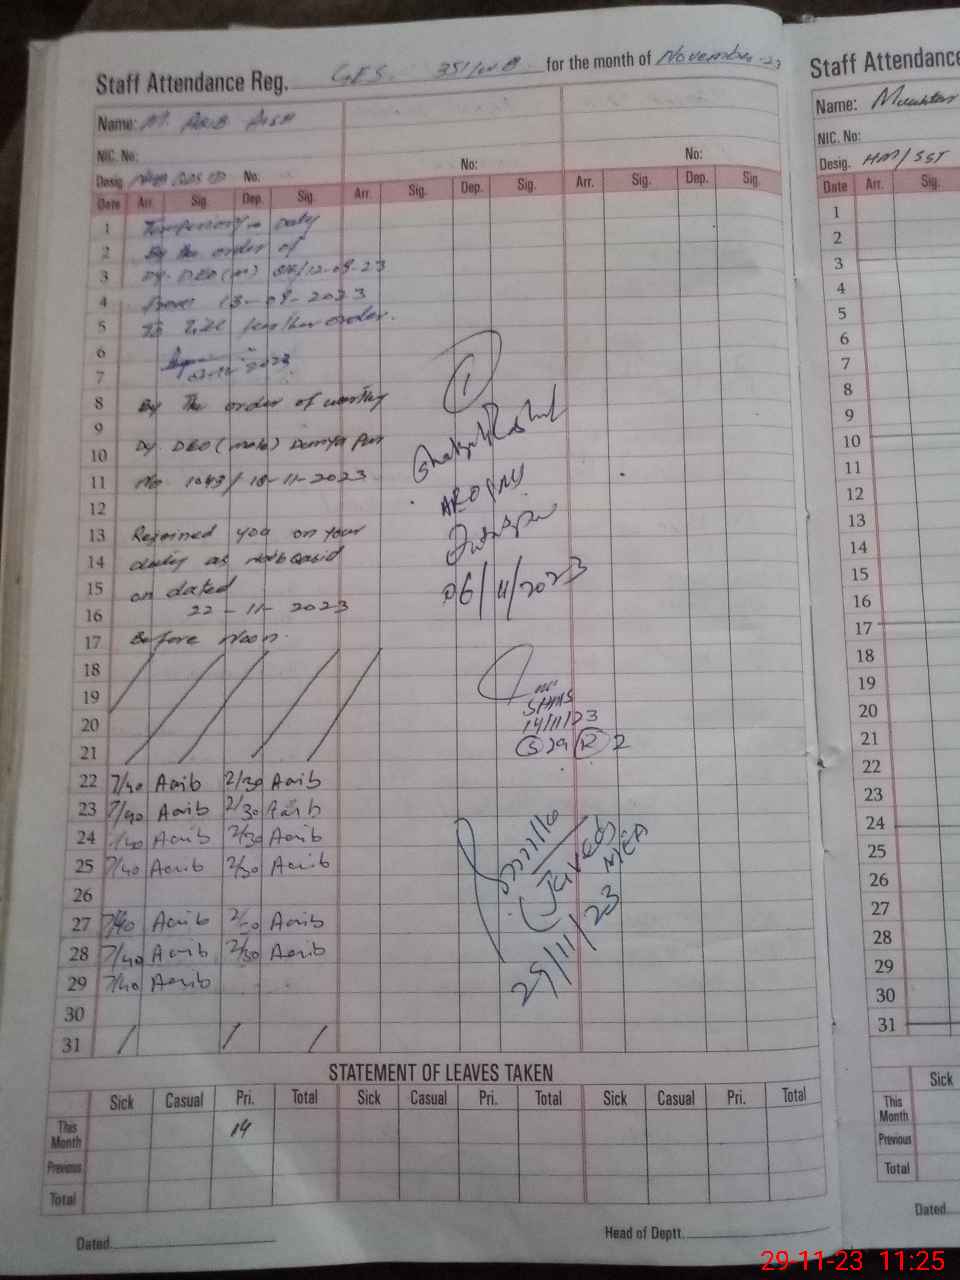 Staff Attendance Reg. GES. 351/WB for the month of November-23
Name: M. Arib
NIC. No:
Desig. No: No: No:
Date Arr. Sig. Dep. Sig. Arr. Sig. Dep. Sig. Arr. Sig. Dep. Sig.
1 duty
2 By the order of
3 Dy. DEO (m) 12-09-23
4 13-09-2023
5 order.
6
7 2023
8 By The order of worthy
9
10 Dy DEO (male) Dunya Pur
11 No 1043/18-11-2023
12
13 Rejoined you on your
14 duty as naib Qasid
15 on dated
16 22-11-2023
17 Before Noon.
18
19
20
21
22 7/40 Aarib 2/30 Aarib
23 7/40 Aarib 2/30 Aarib
24 7/40 Aarib 2/30 Aarib
25 7/40 Aarib 2/30 Aarib
26
27 7/40 Aarib 2/30 Aarib
28 7/40 Aarib 2/30 Aarib
29 7/40 Aarib
30
31
1
06/11/2023
14/11/23
S 29 R 2
Javed
MEA
29/11/23
STATEMENT OF LEAVES TAKEN
Sick Casual Pri. Total Sick Casual Pri. Total Sick Casual Pri. Total
This Month 14
Previous
Total
Dated. Head of Deptt.
Staff Attendance
Name:
NIC. No:
Desig. HM/SST
Date Arr. Sig.
1
2
3
4
5
6
7
8
9
10
11
12
13
14
15
16
17
18
19
20
21
22
23
24
25
26
27
28
29
30
31
Sick
This Month
Previous
Total
Dated.
29-11-23 11:25